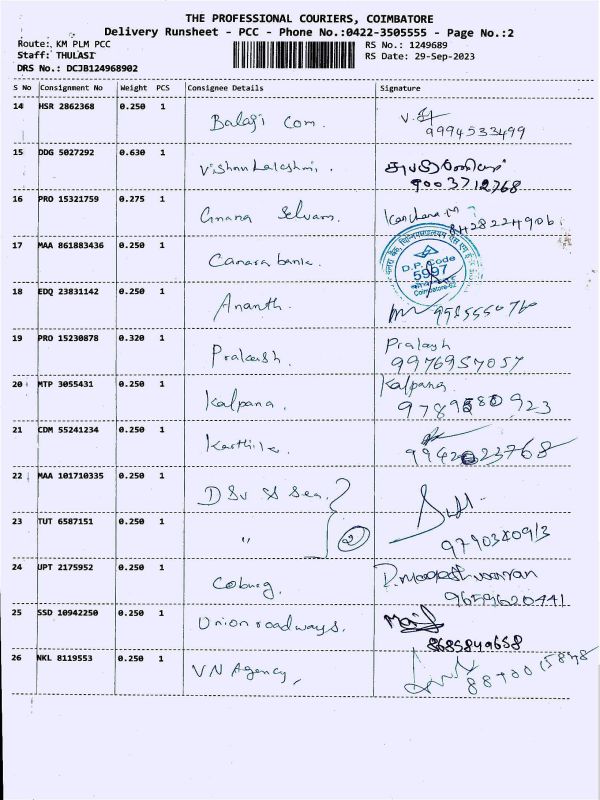 THE PROFESSIONAL COURIERS, COIMBATORE
Delivery Runsheet - PCC - Phone No.:0422-3505555 - Page No.:2
Route: KM PLM PCC RS No.: 1249689
Staff: THULASI RS Date: 29-Sep-2023
DRS No.: DCJB124968902
S No Consignment No Weight PCS Consignee Details Signature
14 HSR 2862368 0.250 1 Balaji Com.
9994533499
15 DDG 5027292 0.630 1 Vishnu Lakshmi.
9003712768
16 PRO 15321759 0.275 1 Gnana Selvam. Kanchana.M
17 MAA 861883436 0.250 1 Canara bank.
D.P. Code
5997
Coimbatore-62
18 EDQ 23831142 0.250 1 Ananth.
19 PRO 15230878 0.320 1 Prakash. Prakash
9976957057
20 MTP 3055431 0.250 1 Kalpana. Kalpana.
21 CDM 55241234 0.250 1 Karthik.
22 MAA 101710335 0.250 1
23 TUT 6587151 0.250 1 " 2
24 UPT 2175952 0.250 1 Coburg.
9659620441
25 SSD 10942250 0.250 1 Union roadways.
8685849658
26 NKL 8119553 0.250 1 VN Agency.